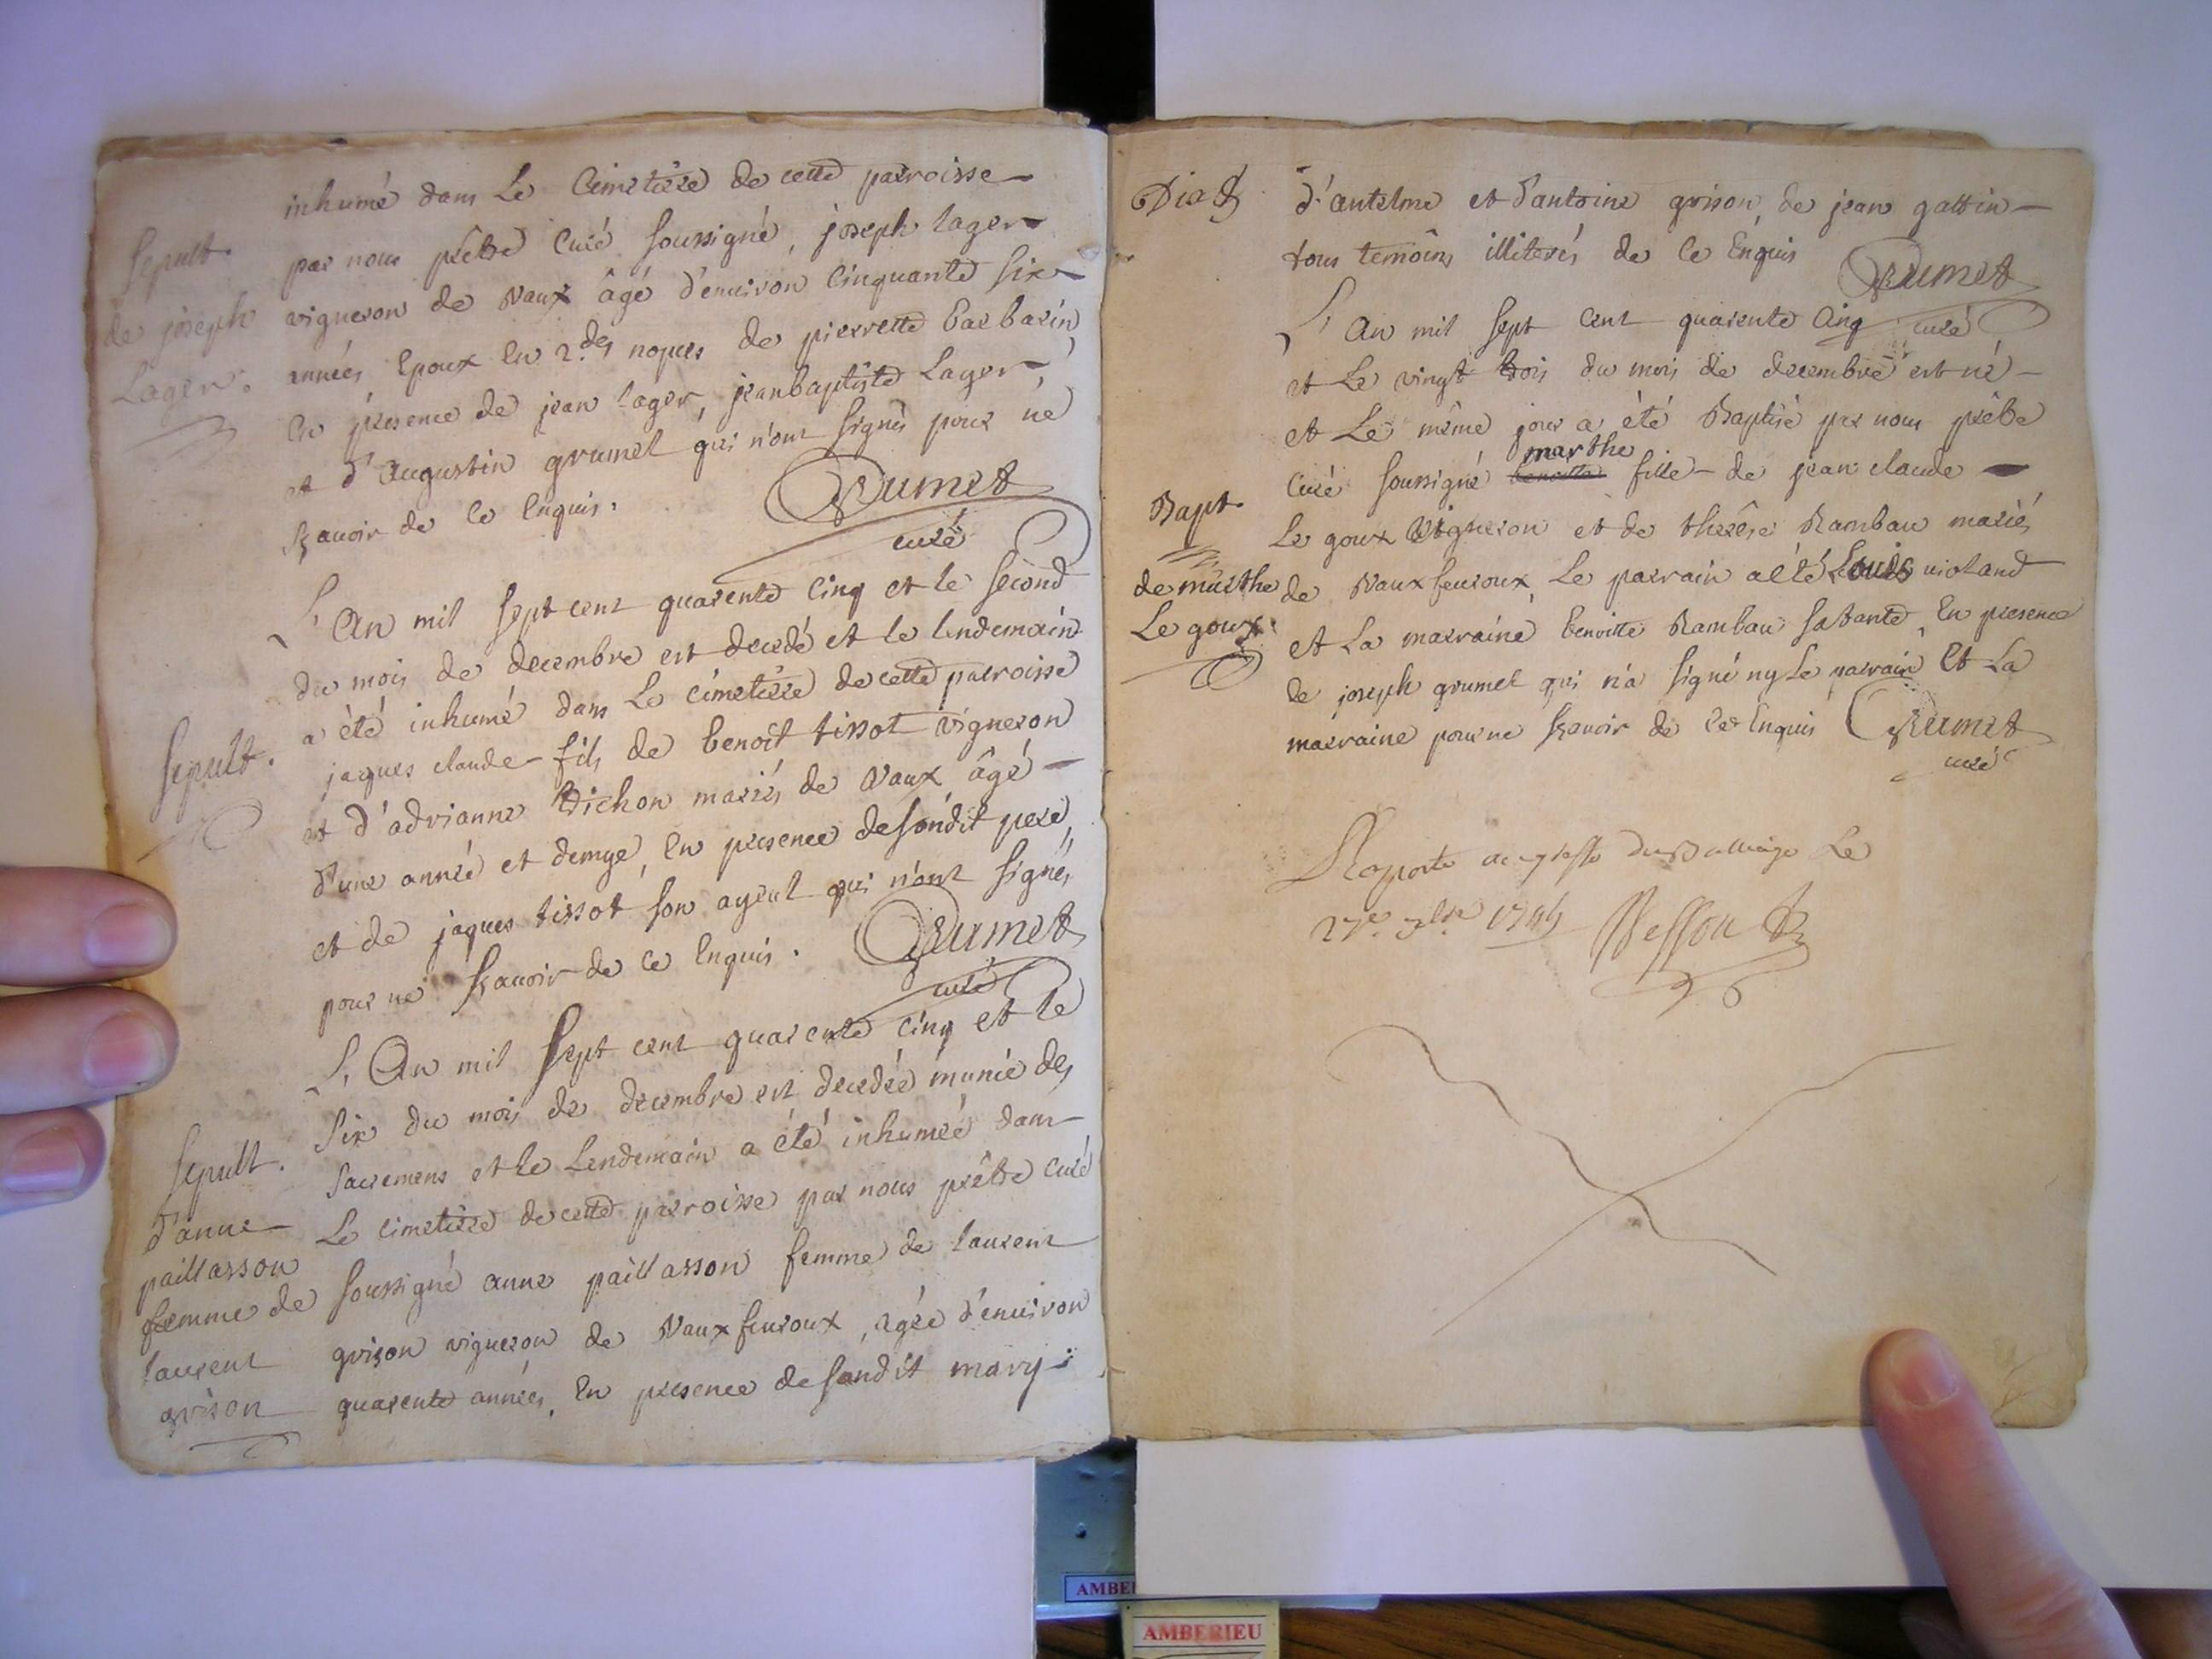 inhumé dans Le Cimetière de cette parroisse
par nous prêtre Curé soussigné, joseph lager
vigneron de Vaux âgé d'environ Cinquante six
années Epoux En 2.des nopces de pierrette barbarin,
En presence de jean lager, jeanbaptiste Lager,
et d'Augustin grumet qui n'ont signés pour ne
sçavoir de ce Enquis.
Grumet
curé
Sepult.
de joseph
Lager.
L'An mil sept cent quarente Cinq et le second
du mois de decembre est decedé et le lendemain
a été inhumé dans Le cimetière de cette parroisse
jaques claude fils de benoit tissot vigneron
et d'adrianne Dichon mariés de Vaux âgé
d'une année et demye, En presence de sondit pere,
et de jaques tissot son ayeul qui n'ont signés
pour ne sçavoir de ce Enquis.
Grumet
curé
Sepult.
L'An mil sept cent quarente Cinq et le
six du mois de decembre est decedée munie des
sacremens et le Lendemain a été inhumée dans
Le cimetière de cette parroisse par nous prêtre Curé
soussigné anne paillasson femme de laurent
grison vigneron de Vaux fevroux, agée d'environ
quarente années, En presence de sondit mary
Sepult.
d'anne
paillasson
femme de
laurent
grison
d'antelme et d'antoine grison, de jean gattin
tous temoins illiterés de ce Enquis
Grumet
curé
L'An mil sept cent quarente Cinq
et Le vingt trois du mois de decembre est né
et Le même jour a été Baptisé par nous prêtre
marthe
Curé soussigné benoitte fille de jean claude
Le goux vigneron et de therêse Rambau mariés
de Vaux fevroux, Le parrain a été Louis violand
et La marraine benoitte Rambau sa tante, En presence
de joseph grumet qui n'a signé ny Le parrain Et La
marraine pour ne sçavoir de ce Enquis
Grumet
curé
Bapt.
de marthe
Le goux.
Raporté au greffe du Balliage Le
Besson
AMBERIEU